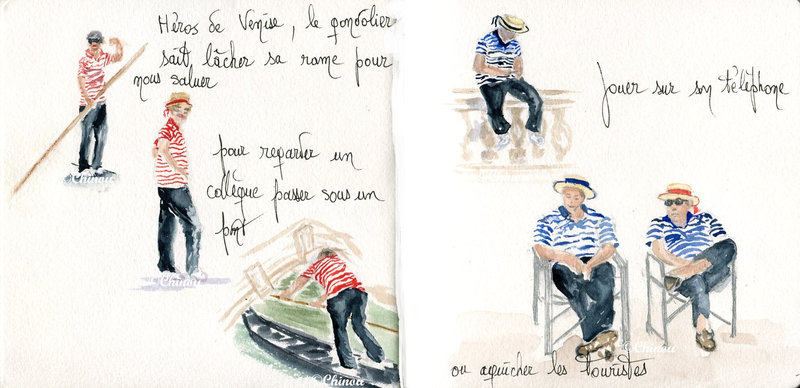 Héros de Venise, le gondolier
sait lâcher sa rame pour
nous saluer
©Chinou
pour regarder un
collègue passer sous un
pont
©Chinou
©Chinou
Jouer sur son téléphone
©Chinou
ou aguicher les touristes